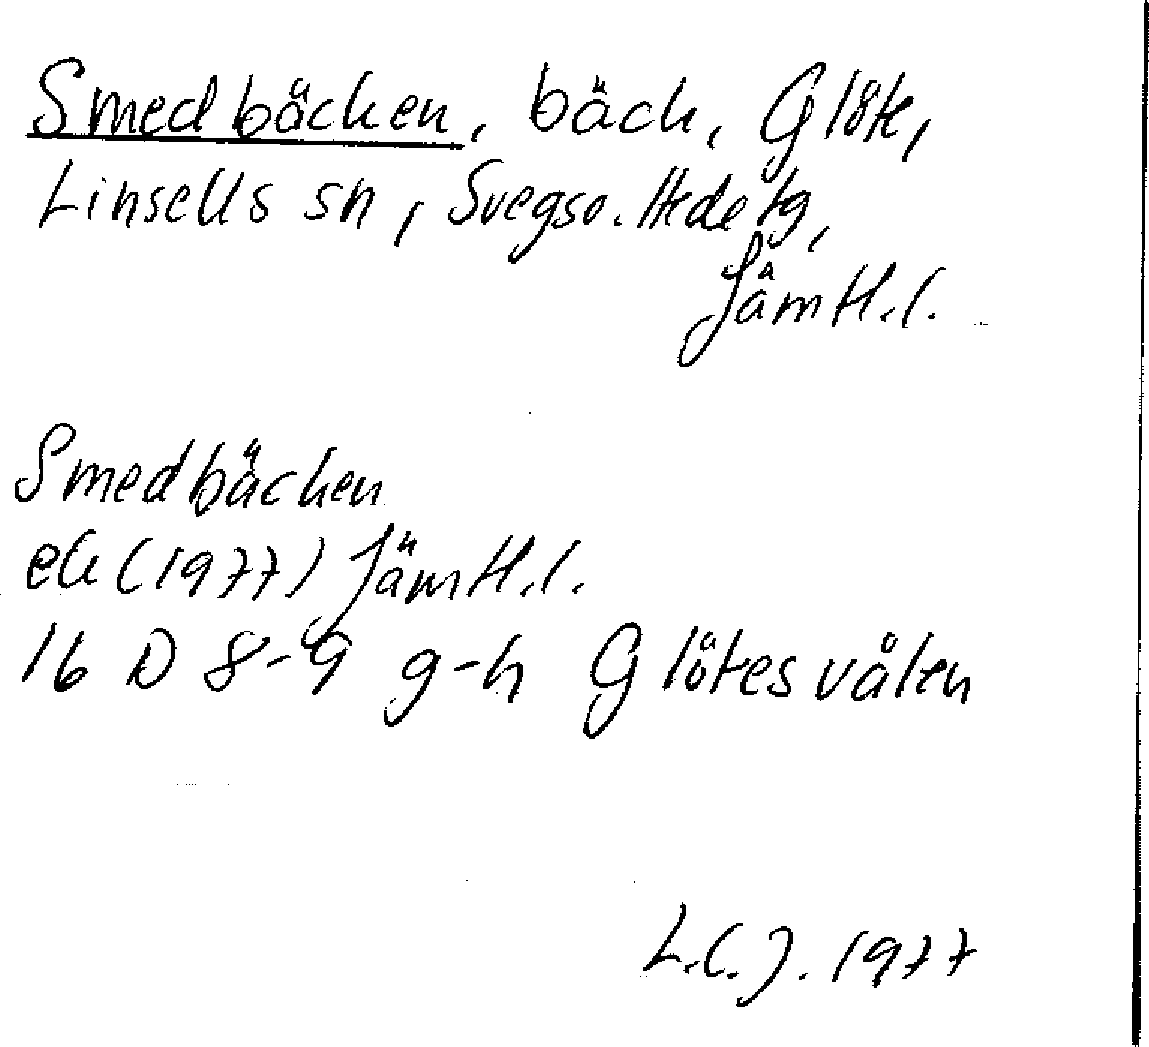 Smedbäcken, bäck, Glöte,
Linsells sn, Svegs o. Hede tg,
Jämtl. l.
Smedbäcken
ek (1977) Jämtl. l.
16 D 8-9 g-h Glötesvålen
L.C.J. 1977